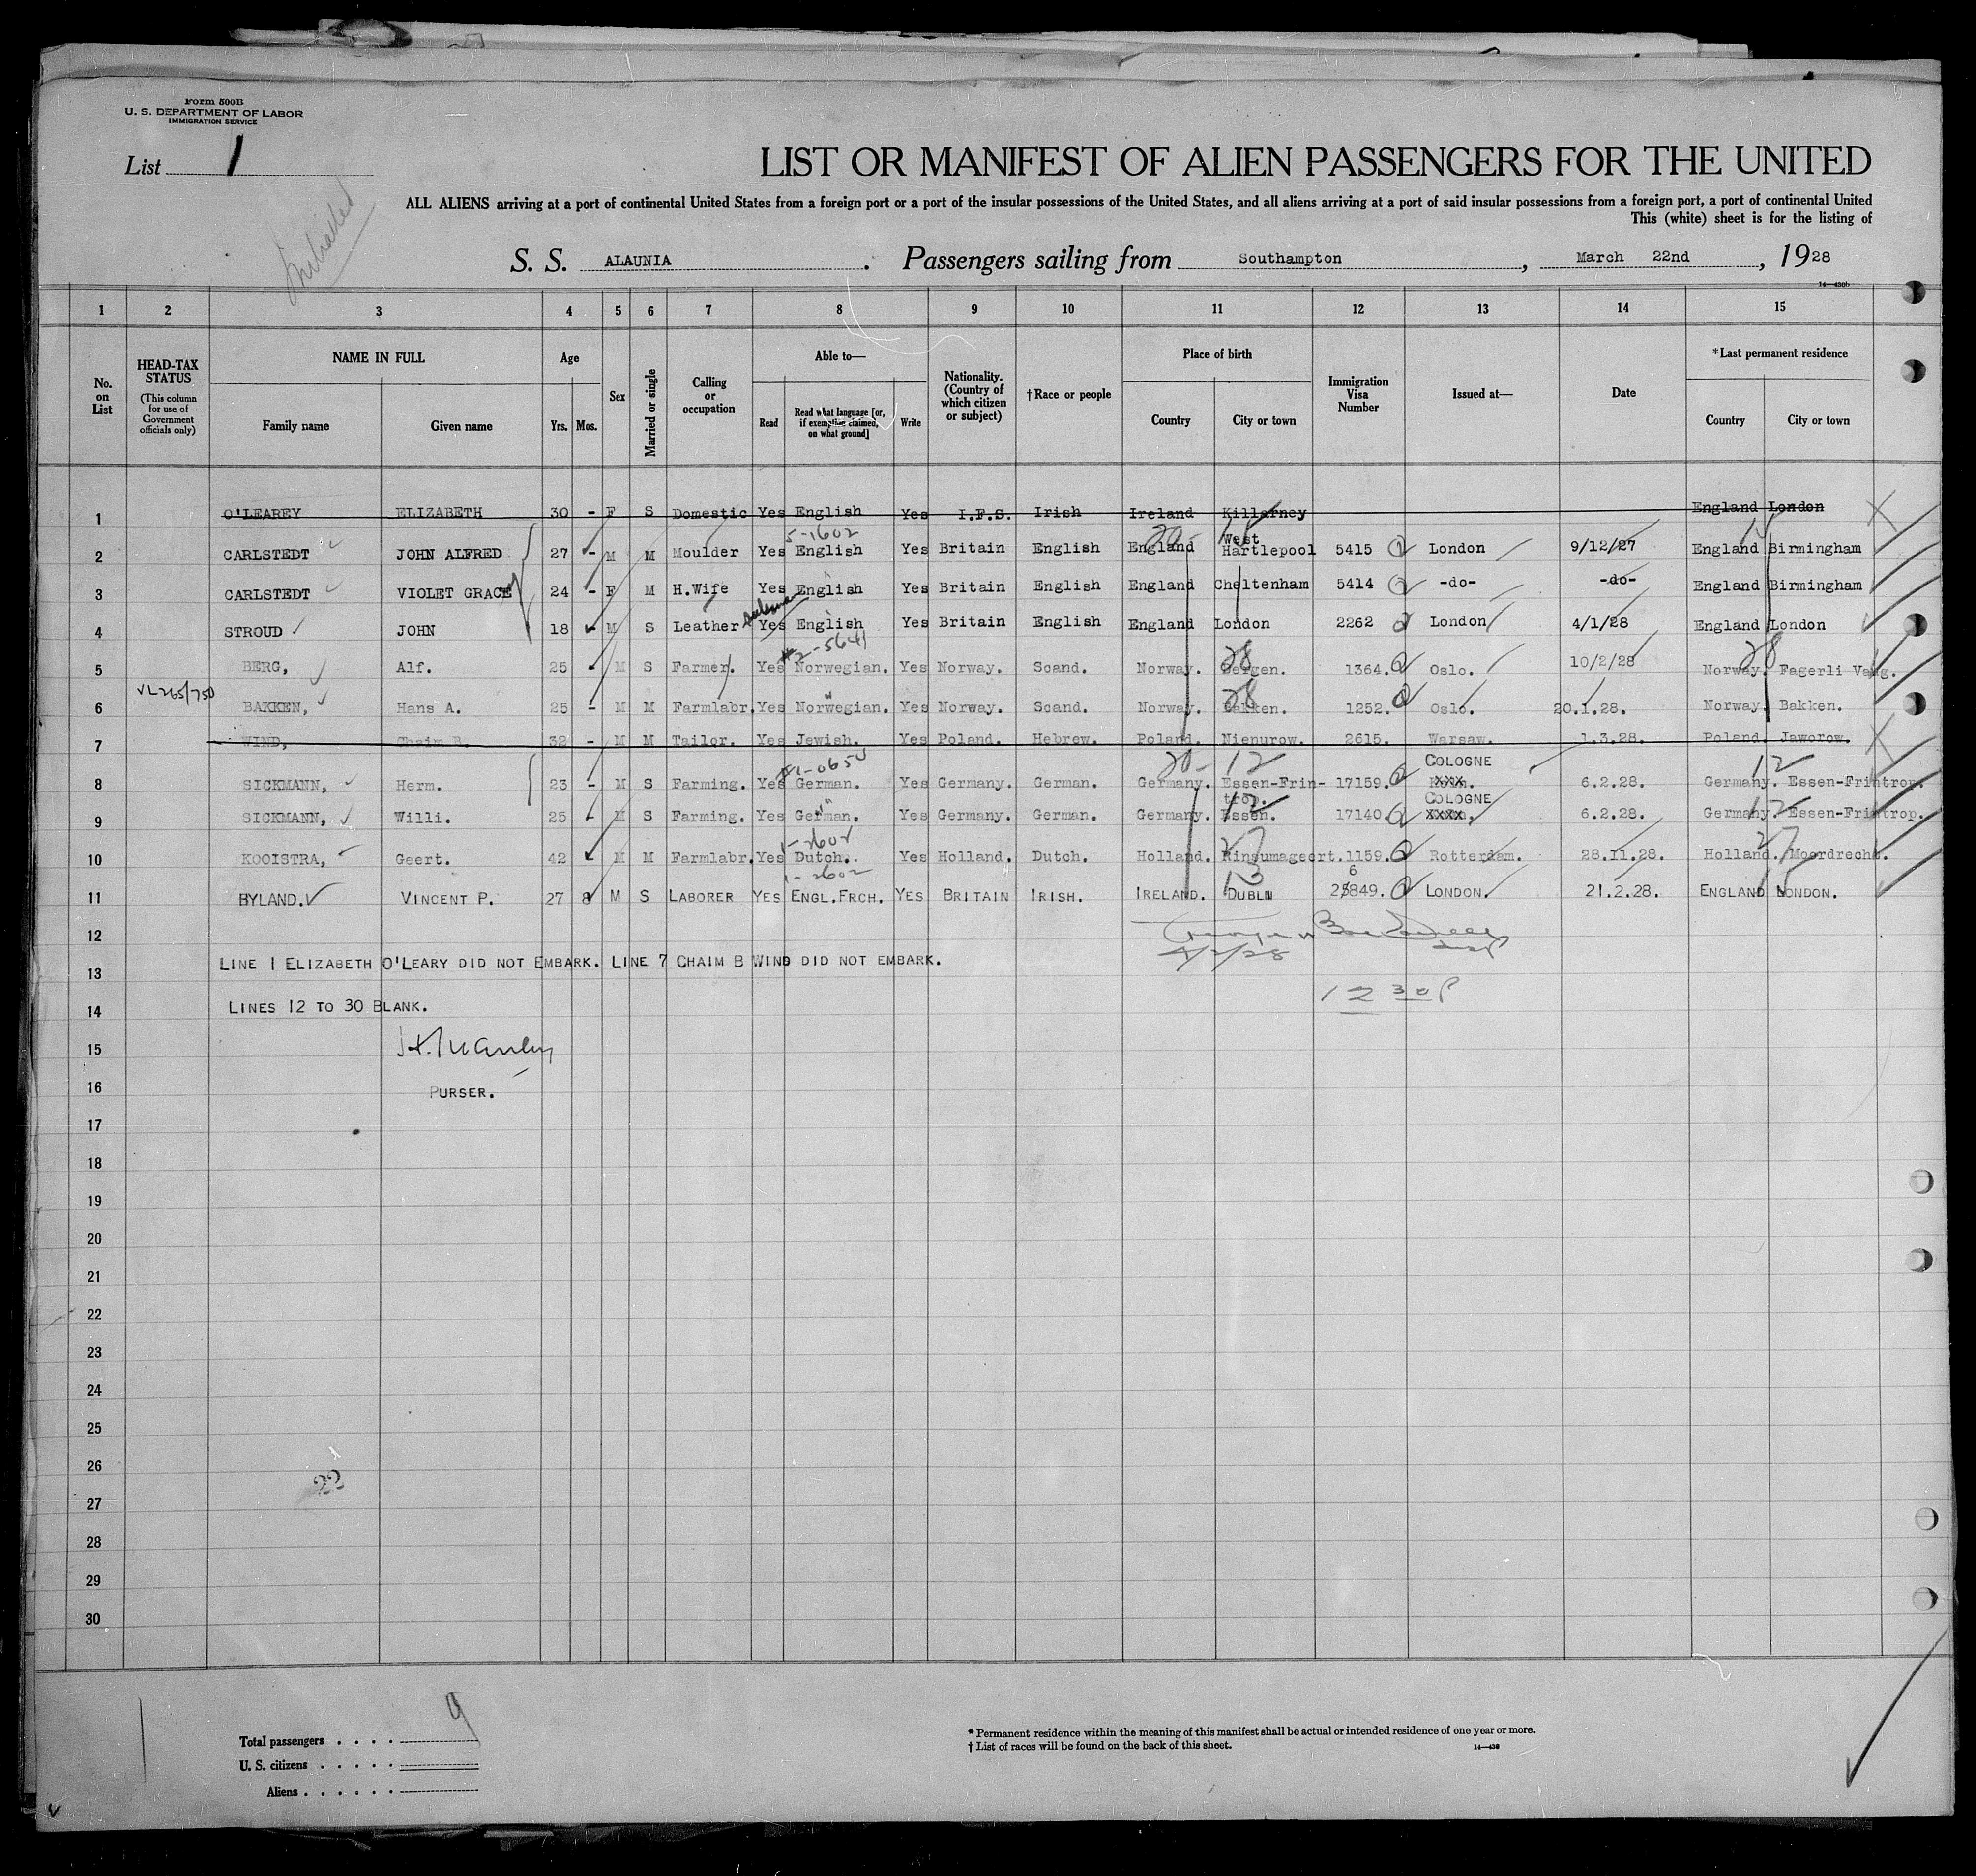 Form 500B
U. S. DEPARTMENT OF LABOR
IMMIGRATION SERVICE
List 1
LIST OR MANIFEST OF ALIEN PASSENGERS FOR THE UNITED
ALL ALIENS arriving at a port of continental United States from a foreign port or a port of the insular possessions of the United States, and all aliens arriving at a port of said insular possessions from a foreign port, a port of continental United
This (white) sheet is for the listing of
S. S. ALAUNIA. Passengers sailing from Southampton, March 22nd, 1928
1 2 3 4 5 6 7 8 9 10 11 12 13 14 15
No. on List
HEAD-TAX STATUS
(This column for use of Government officials only)
NAME IN FULL
Family name Given name
Age
Yrs. Mos.
Sex
Married or single
Calling or occupation
Able to—
Read
Read what language [or, if exemption claimed, on what ground]
Write
Nationality. (Country of which citizen or subject)
†Race or people
Place of birth
Country City or town
Immigration Visa Number
Issued at—
Date
*Last permanent residence
Country City or town
1 O'LEAREY ELIZABETH 30 - F S Domestic Yes English Yes I.F.S. Irish Ireland Killarney England London
5-1602
2 CARLSTEDT JOHN ALFRED 27 - M M Moulder Yes English Yes Britain English England West Hartlepool 5415 London 9/12/27 England Birmingham
3 CARLSTEDT VIOLET GRACE 24 - F M H.Wife Yes English Yes Britain English England Cheltenham 5414 -do- -do- England Birmingham
4 STROUD JOHN 18 - M S Leather Yes English Yes Britain English England London 2262 London 4/1/28 England London
#2-5641
5 BERG, Alf. 25 M S Farmer. Yes Norwegian. Yes Norway. Scand. Norway. Bergen. 1364. Oslo. 10/2/28 Norway. Fagerli Vang.
VL265/750
6 BAKKEN, Hans A. 25 - M M Farmlabr. Yes Norwegian. Yes Norway. Scand. Norway. Bakken. 1252. Oslo. 20.1.28. Norway. Bakken.
7 WIND, Chaim B. 32 - M M Tailor. Yes Jewish. Yes Poland. Hebrew. Poland. Nienurow. 2615. Warsaw. 1.3.28. Poland. Jaworow.
8 SICKMANN, Herm. 23 - M S Farming. Yes German. Yes Germany. German. Germany. Essen-Frin-trop. 17159. COLOGNE 6.2.28. Germany. Essen-Frintrop.
9 SICKMANN, Willi. 25 - M S Farming. Yes German. Yes Germany. German. Germany. Essen. 17140. COLOGNE 6.2.28. Germany. Essen-Frintrop.
1-2602
10 KOOISTRA, Geert. 42 - M M Farmlabr. Yes Dutch. Yes Holland. Dutch. Holland. Rinsumageert. 1159. Rotterdam. 28.11.28. Holland. Moordrecht.
1-2602
11 HYLAND. VINCENT P. 27 8 M S LABORER YES ENGL.FRCH. YES BRITAIN IRISH. IRELAND. DUBLIN 25849. LONDON. 21.2.28. ENGLAND LONDON.
12
4/2/28
LINE 1 ELIZABETH O'LEARY DID NOT EMBARK. LINE 7 CHAIM B WIND DID NOT EMBARK.
13
12 30 P
14 LINES 12 TO 30 BLANK.
15
16 PURSER.
17
18
19
20
21
22
23
24
25
26
22
27
28
29
30
Total passengers . . . . 9
U. S. citizens . . . . .
Aliens . . . . . .
* Permanent residence within the meaning of this manifest shall be actual or intended residence of one year or more.
† List of races will be found on the back of this sheet.
14—430